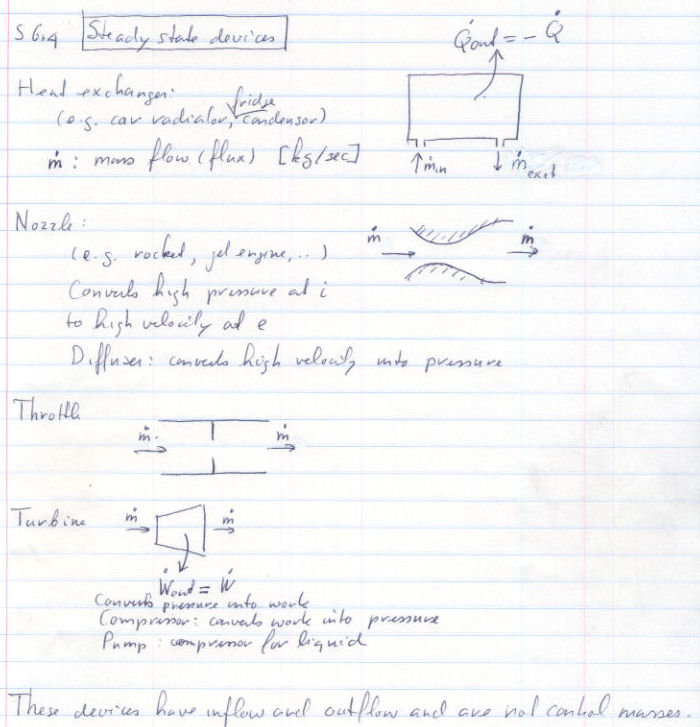 S 6.4 Steady state devices
Q̇out = - Q̇
Heat exchanger:
(e.g. car radiator, fridge condensor)
ṁ : mass flow (flux) [kg/sec]
ṁin
ṁexit
Nozzle:
(e.g. rocket, jet engine, ..)
ṁ
ṁ
Converts high pressure at i
to high velocity at e
Diffuser: converts high velocity into pressure
Throttle
ṁ
ṁ
Turbine
ṁ
ṁ
Ẇout = Ẇ
Converts pressure into work
Compressor: converts work into pressure
Pump: compressor for liquid
These devices have inflow and outflow and are not control masses.